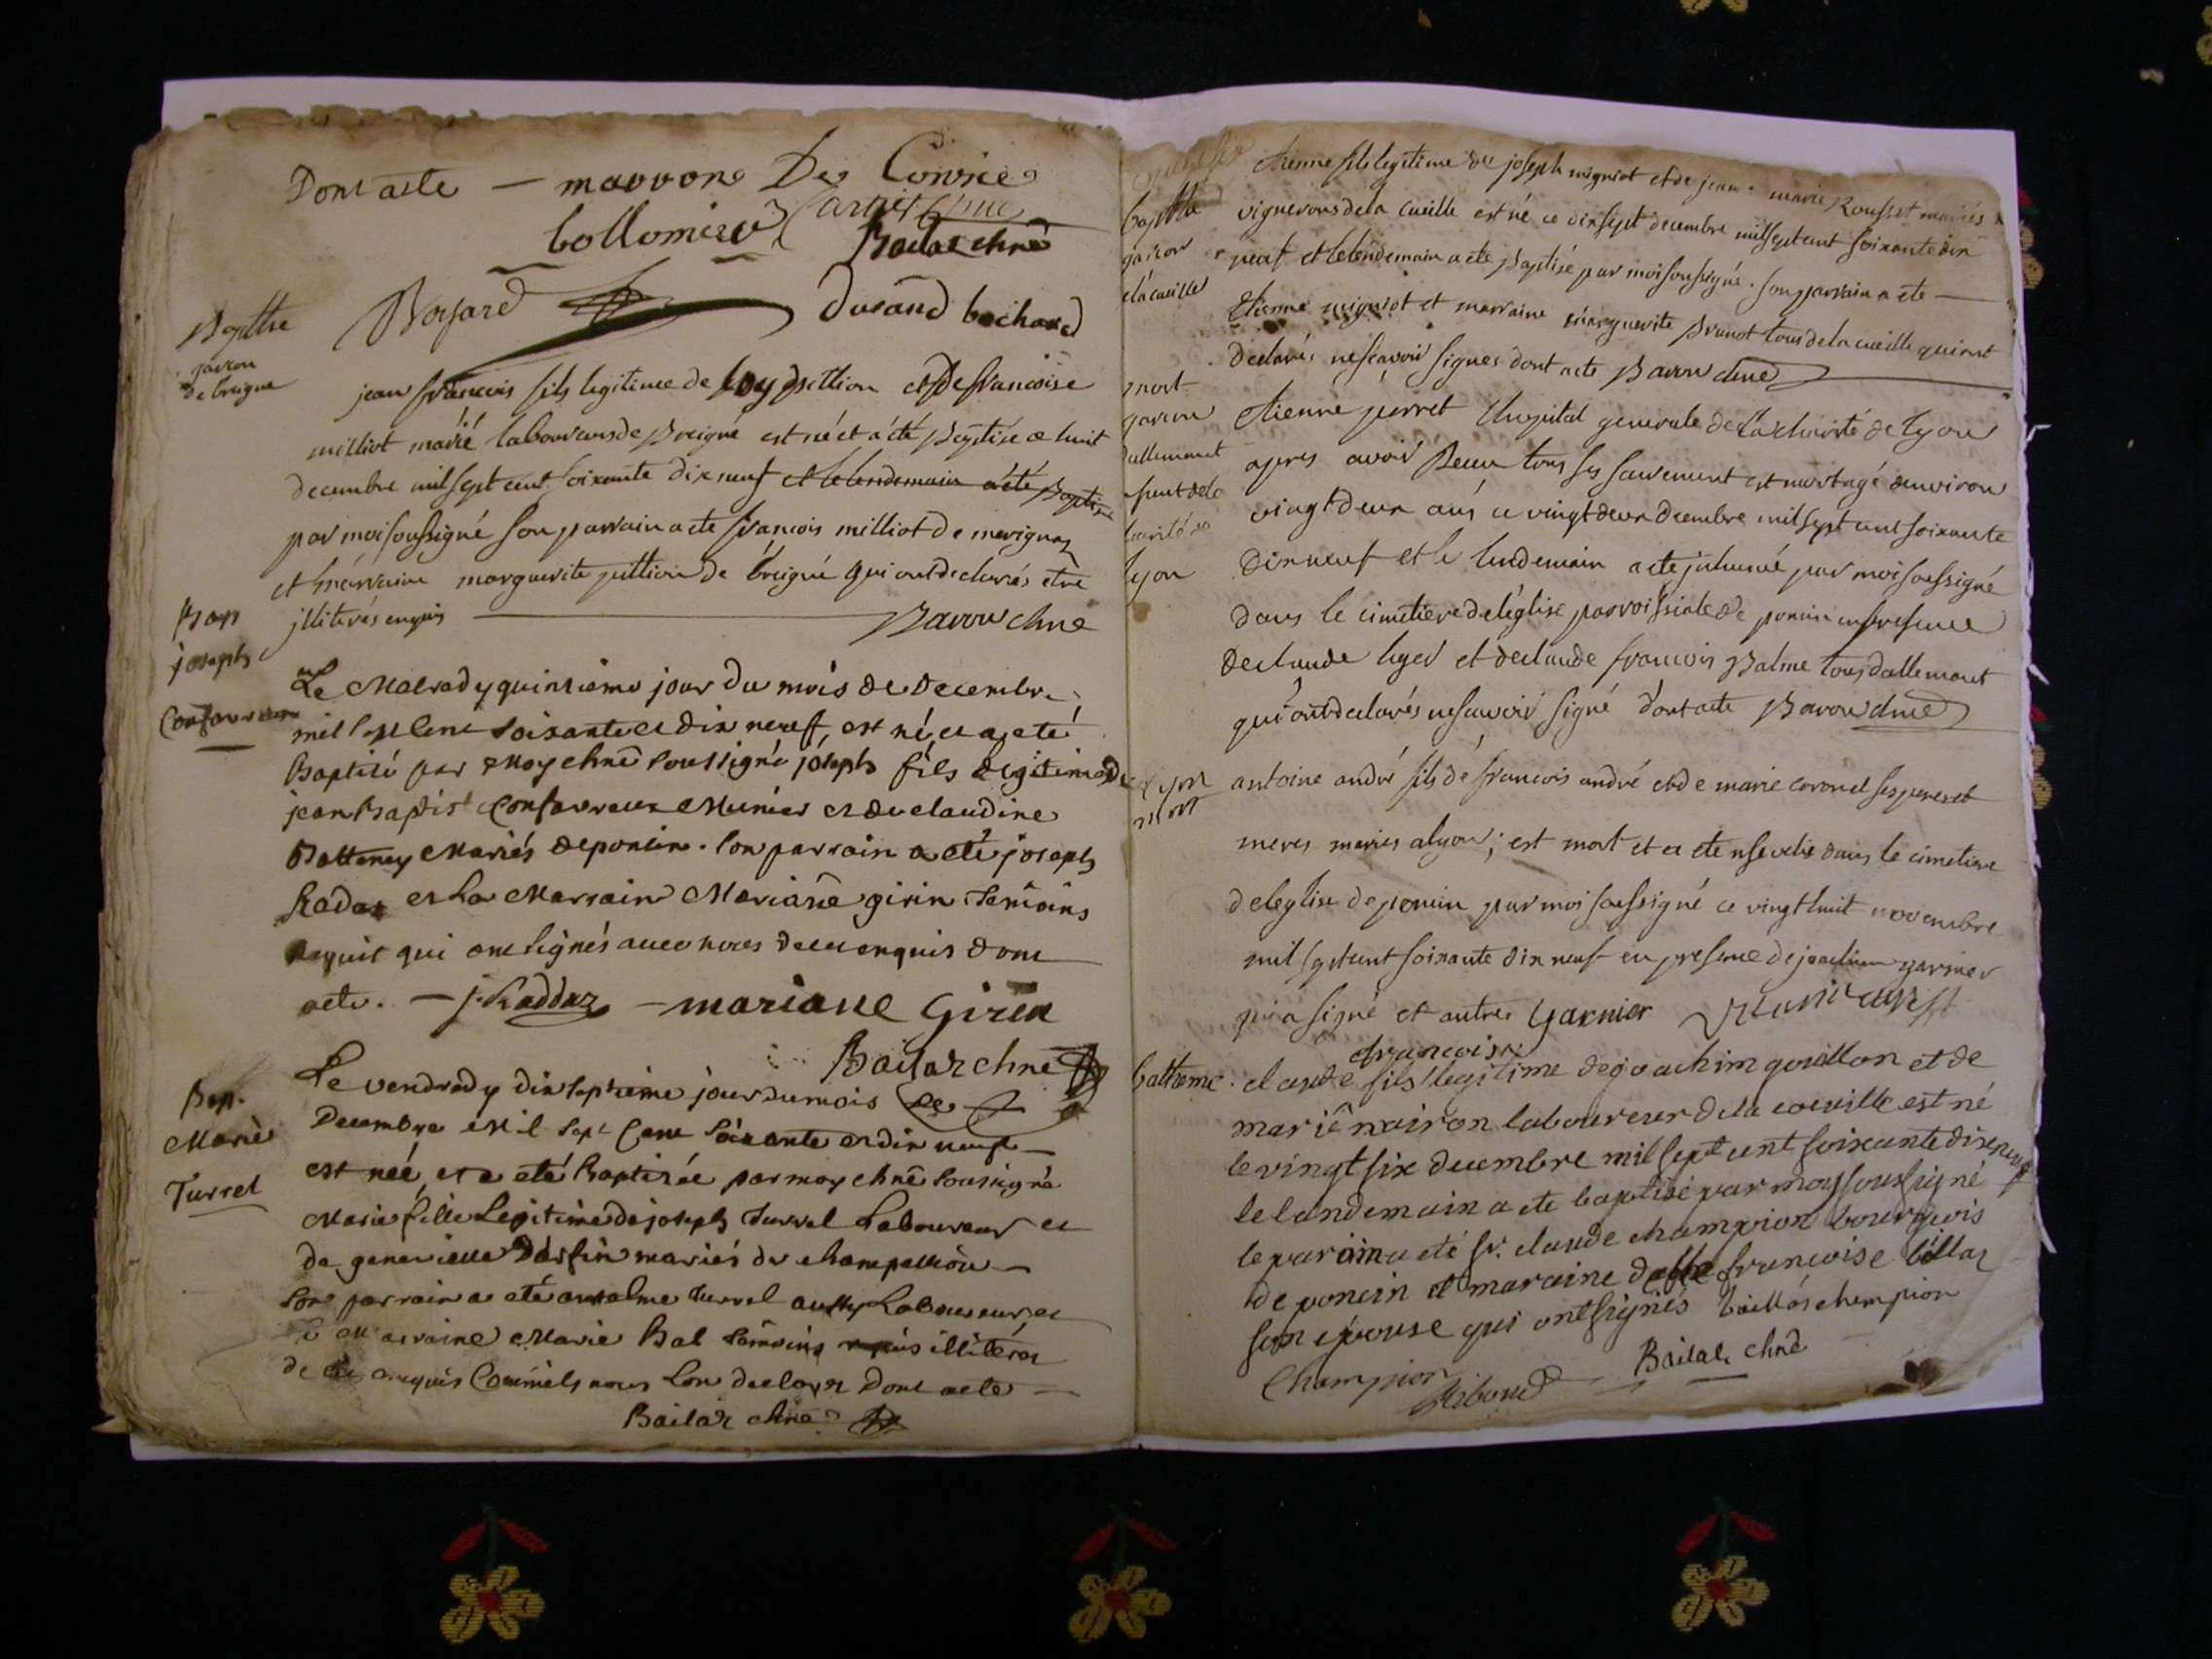 Dont acte — marron De Corvie
bollomier
Bailar chne
Boyard durand bochard
Bapthe
garcon
de breigne
jean francois fils legitime de pittion et de francoise
milliot marié laboureurs de Breigne est né et a été Baptisé ce huit
decembre mil sept cent soixante dix neuf et le lendemain a été Baptisé
par moi soussigné son parrain a ete francois milliot de merignaz
et marraine marguerite pittion de breigné qui ont declarés etre
jlliterés enquis Bavou chne
Bap
joseph
Confavreux
Le Mecredy quinzieme jour du mois de Decembre
mil sept Cent soixante et dix neuf, est né, et a eté
Baptisé par Moy chne soussigné joseph fils Legitime de
jean Baptist Confavreux Munier et de claudine
Battonay Mariés de poncin. son parrain a eté joseph
Radaz et La Marrain Mariane girin temoins
requit qui ont signés avec nous de ce enquis dont
acte. — j. Raddaz — mariane Girin
Bailar chne
Bap.
Marie
Turrel
Le vendredy dix septieme jour du mois de
Decembre Mil sept Cent soixante et dix neuf
est née, et a eté Baptisée par moy chne soussigné
Marie fille Legitime de joseph Turrel Laboureur et
de genevieve mariés de champeillion
son parrain a eté antalme Turrel aussy Laboureur, et
la Marraine Marie Bal temoins requis illiteres
de ce enquis Comme ils nous l'on declarer Dont acte —
Bailar chne
bapthe
garcon
de la cueille
etienne fils legitime de joseph migniot et de jeanne marie Rousset mariés
vignerons de la cueille est né ce dix sept decembre mil sept cent soixante dix
neuf et le lendemain a ete Baptisé par moi soussigné. son parrain a ete —
Etienne migniot et marraine marguerite Brunot tous de la cueille qui ont
declarés ne scavoir signes dont acte Bavou chne
mort
garcon
dallemment
Lyon
etienne perret l'hopital generale de la charité de Lyon
apres avoir Recu tous ses sacrement est mort agé denviron
vingt deux ans ce vingt deux decembre mil sept cent soixante
dix neuf et le lendemain a ete jnhumé par moi soussigné
dans le cimetiere de l'église parroissiale de poncin en presence
de claude liger et de claude francois Balme tous dallement
qui ont declarés ne scavoir signé dont acte Bavou chne
Lyon
mort
antoine andré fils de francois andré et de marie coronel ses peres et
meres mariés a lyon; est mort et a ete ensevelie dans le cimetiere
de leglise de poncin par moi soussigné ce vingt huit novembre
mil sept cent soixante dix neuf en presence de joachim garnier
qui a signé et autres Garnier
battême
francois
claude fils legitime de joachim gouillon et de
marie mairon laboureur de la coeuille est né
le vingt six decembre mil sept cent soixante dix neuf
le landemain a ete baptisé par moy soussigné
le parain a eté sr. claude champion bourgeois
de poncin et maraine delle francoise billaz
son epouse qui ont signés baillas champion
Champion Ribout Bailar chne